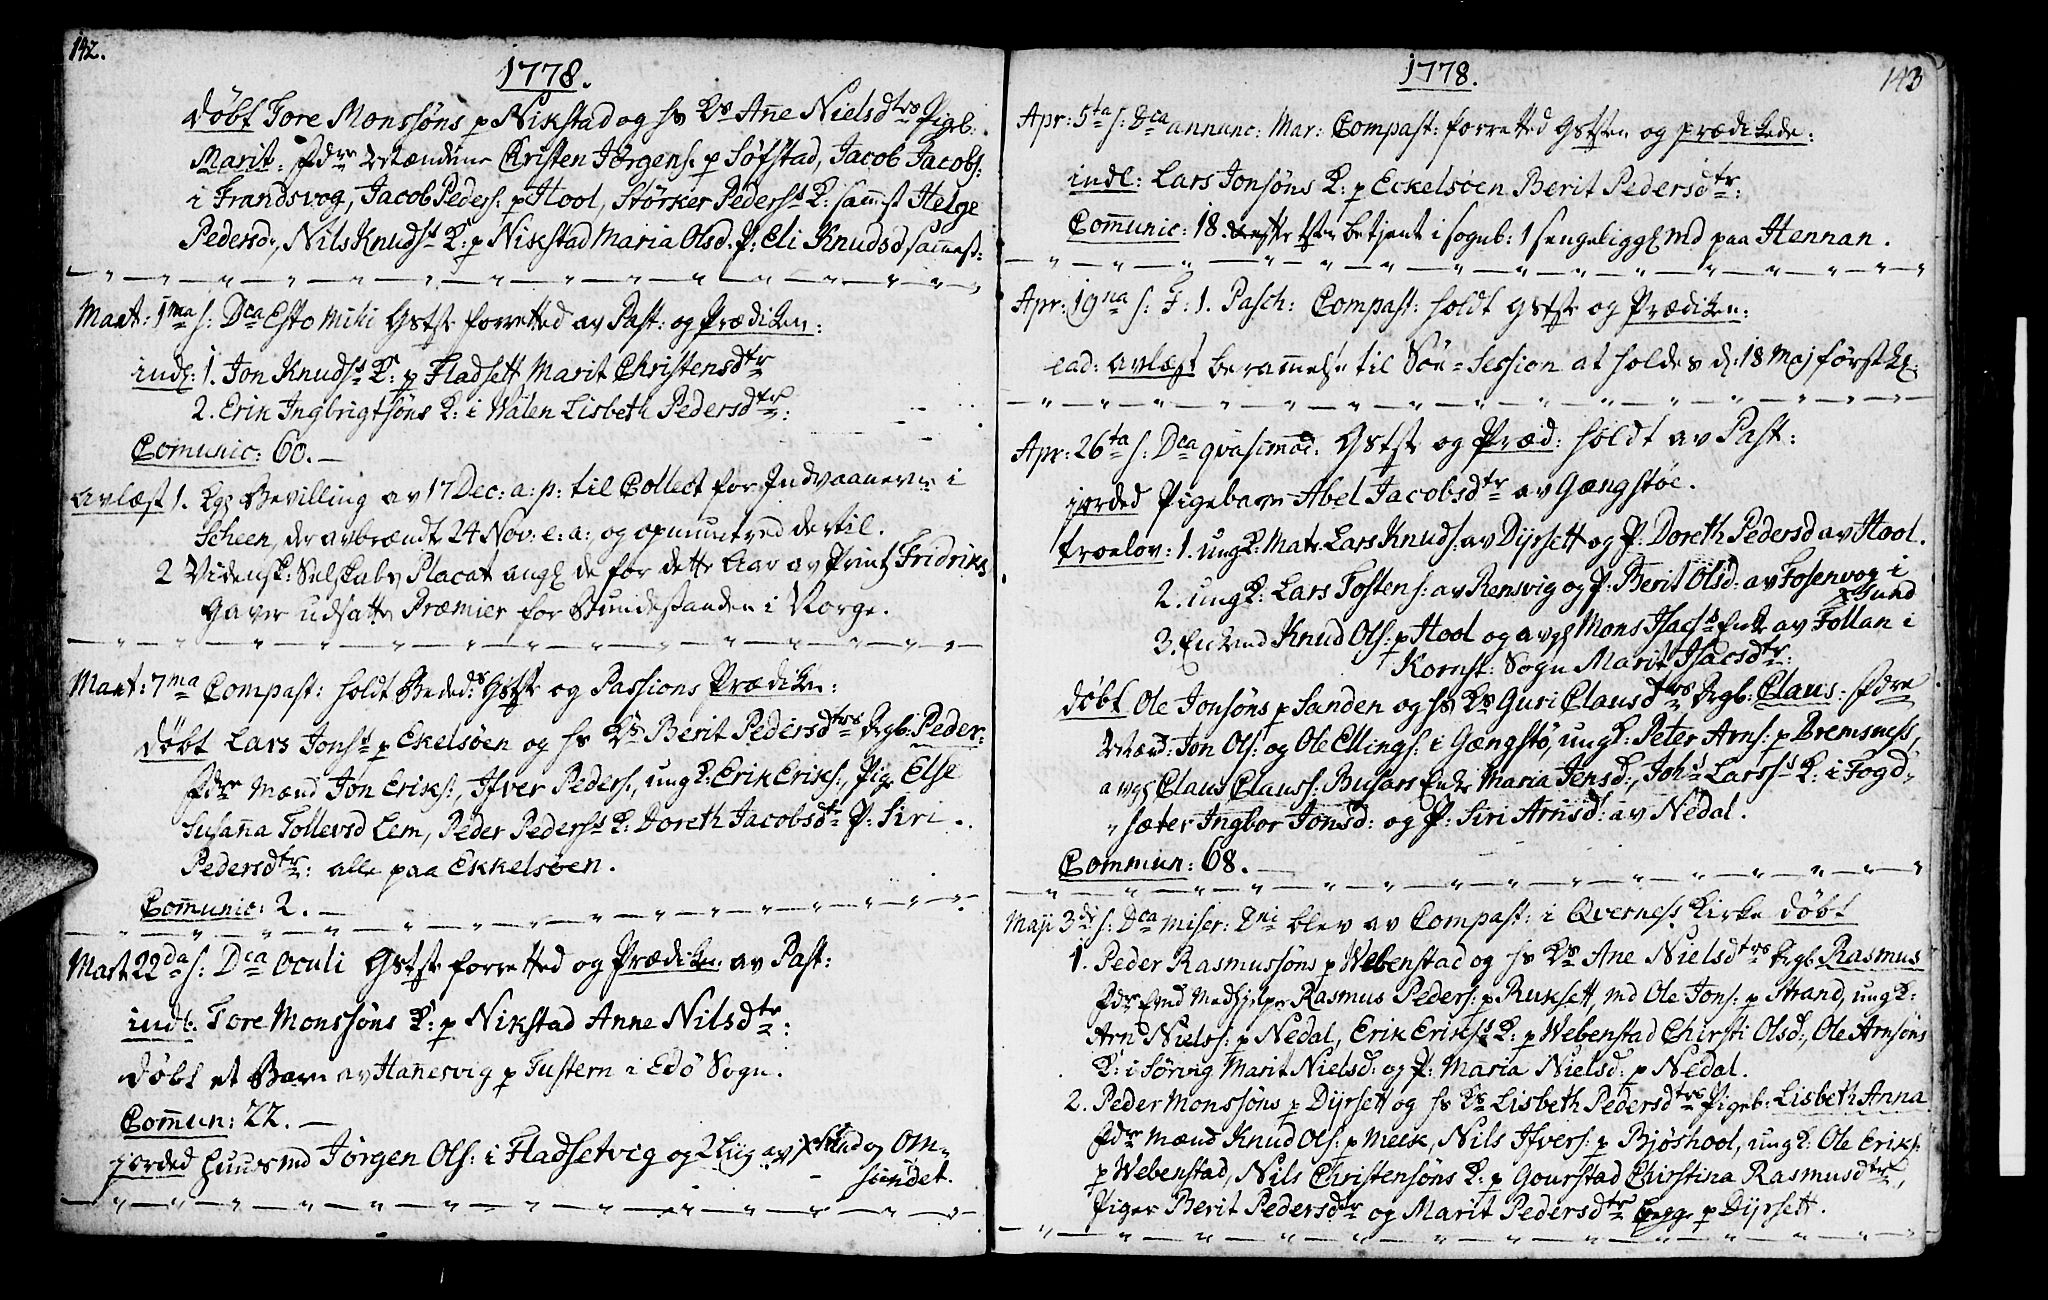 142.
1778.
døbt Tore Monssøns p Nikstad og hs Ks Ane Nielsdtrs Pigb:
Marit: fdre Ektændene Cristen Jörgens: p Søfstad, Jacob Jacobs:
i Frandsvog, Jacob Peders: p Hool, Størker Pederss K: samst Helge
Pedersd:, Nils Knuds K: p Nikstad Maria Olsd. P: Eli Knudsd samest:
Mart: 1ma s: Dca Esto mihi Gstste forretted av Past: og Prædiken:
indl: 1. Jon Knuds K: p Fladsett Marit Christensdtr
2. Erik Ingbrigtsøns K: i Walen Lisbeth Pedersdtr:
Comunic: 60. —
avlæst 1. Kgl Bevilling av 17 Dec: a: p: til Collect for Indvaanerne i
Scheen, der avbrændt 24 Nov: e: a: og opmuntred dertil.
2 Vidensk: Selskabs Placat angl de for dette Aar av Prints Fridriks
Gaver udsatte Præmier for Bundestanden i Norge.
Mart: 7ma Compast: holdt Beded: Gstste og Passions Prædiken:
døbt Lars Jons p Ekelsøen og hs Ks Berit Pedersdtrs drgb: Peder:
fdre Mænd Jon Eriks:, Ifver Peders:, ungk: Erik Eriks:, Pige Else
Susanna Tollevsd Lem, Peder Pederss K: Doreth Jacobsdtr P: Siri
Pedersdtr: alle paa Ekkelsøen.
Comunic: 2. —
Mart 22da s: Dca Oculi Gstste forretted og Prædiken av Past:
indl: Tore Monssøns K: p Nikstad Anne Nilsdtr:
døbt et Barn av Hanesvig p Tustern i Edö Sogn.
Comun: 22. —
jorded huusmd Jörgen Ols: i Fladsetvig og 2 Liig av Xsund og Om-
sundet.
1778.
143
Apr: 5ta s: Dca annunc: Mar: Compast: forretted Gststen og prædikede:
indl: Lars Jonsøns K: p Eckelsøen Berit Pedersdtr:
Comunic: 18. betjent i sognb: 1 sengeliggl md paa Hennan.
Apr: 19na s: F: 1. Pasch: Compast: holdt Gstste og Prædiken:
ead: avlæst berammelse til Söe-Session at holdes d: 18 Maj førstkl:
Apr: 26ta s: Dca qvasimod. Gstste og Præd: holdt av Past:
jorded Pigebarn Abel Jacobsdtr av Gængstøe.
troelov: 1. ungk: Matr: Lars Knuds: av Dyrsett og P: Doreth Pedersd av Hool.
2. ungk: Lars Tostens: av Rensvig og P: Berit Olsd: av Fosenvog i
Xsund
3. Enkemd Knud Ols: p Hool og avgl Mons Isacs Enke av Follan i
Kornst: Sogn Marit Isacsdtr:
døbt Ole Jonsøns p Sanden og hs Ks Guri Clausdtrs drgb: Claus: fdre
Mænd: Jon Ols: og Ole Ellings: i Gængstø, ungk: Peter Arns: p Bremsness,
avgl Claus Clauss: Busars Enke Maria Jensd:, Johs Larss K: i Fogd-
sæter Ingbor Jonsd: og P: Siri Arnsd: av Nedal.
Commun: 68.
Maji 3di s: Dca miser: Dni blev av Compast: i Qverness Kirke døbt
1. Peder Rasmussøns p Webenstad og hs Ks Ane Nielsdtrs drgb Rasmus
fdre Medhjelper Rasmus Peders: p Ruksett, md Ole Jons: p Strand, ungk:
Arn Niels: p Nedal, Erik Eriks K: p Webenstad Chirsti Olsd:, Ole Arnsøns
K: i Søring Marit Nielsd: og P: Maria Nielsd: p Nedal.
2. Peder Monssøns p Dyrsett og hs Ks Lisbeth Pedersdtrs Pigeb: Lisbeth Anna
fdre Mænd Knud Ols: p Meek, Nils Ifvers: p Bjøshool, ungk: Ole Eriks:
p Webenstad, Nils Christensøns K: p Gourstad Chirstina Rasmusdtr,
Piger Berit Pedersdtr og Marit Pedersdtr begge p Dyrsett.